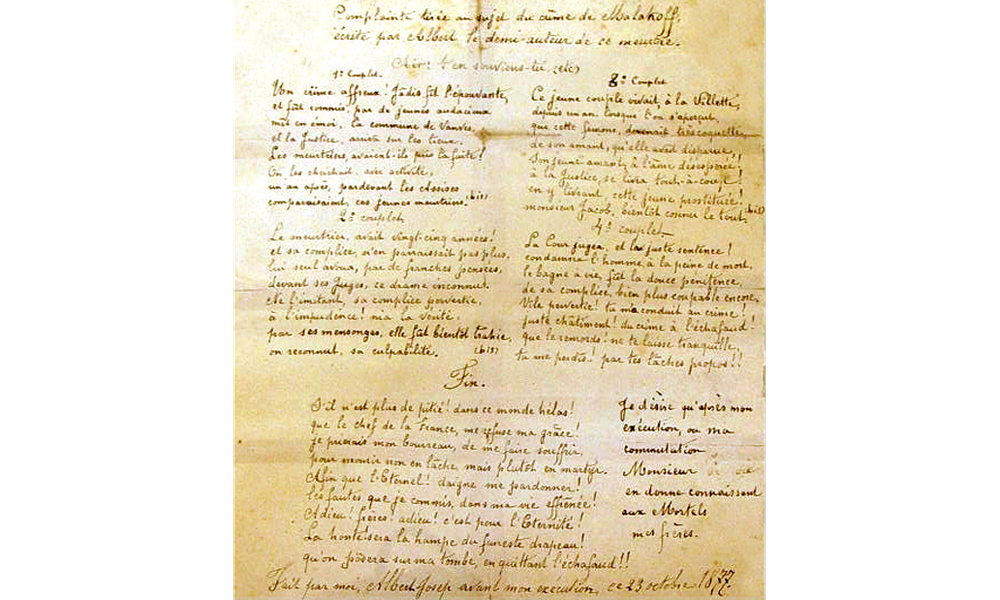 Complainte tirée au sujet du crime de Malakoff,
écrite par Albert le demi-auteur de ce meurtre.
Air: t'en souviens-tu, (etc)
1er Couplet.
Un crime affreux! Jadis fit l'épouvante,
et fut commis, par de jeunes audacieux
mit en émoi, la commune de Vanves,
et la Justice, arriva sur les lieux.
Les meurtriers, avaient-ils pris la fuite!
On les cherchait, avec activité,
un an après, pardevant les Assises
comparaissaient, ces jeunes meurtriers. (bis)
2e couplet,
Le meurtrier, avait vingt-cinq années!
et sa complice, n'en parraissait pas plus,
lui seul avoua, par de franches pensées,
devant ses Juges, ce drame inconnut.
Ne l'imitant, sa complice pervertie,
à l'impudence! nia la vérité.
par ses mensonges, elle fut bientôt trahie,
on reconnut, sa culpabilité. (bis)
8e Couplet
Ce jeune couple vivait, à la Villette,
depuis un an, lorsque l'on s'aperçut,
que cette femme, devenait très coquette,
de son amant, qu'elle avait disparue,
Son jeune amant, à l'âme désespérée!
à la Justice, se livra tout-à-coup!
en y livrant, cette jeune prostituée!
monsieur Jacob, bientôt connu le tout. (bis)
4e couplet,
La Cour jugea, et la juste sentence!
condamna l'homme, à la peine de mort,
le bagne à vie, fut la douce pénitence,
de sa complice, bien plus coupable encore,
Vile pervertie! tu m'a conduit au crime!
juste châtiment! du crime à l'échafaud!
que le remords! ne te laisse tranquille,
tu me perdis! par tes lâches propos!!
Fin.
S'il n'est plus de pitié! dans ce monde hélas!
que le chef de la France, me refuse ma grâce!
Je prierais mon bourreau, de me faire souffrir,
pour mourir non en lâche, mais plutôt en martyr.
Afin que l'Eternel! daigne me pardonner!
les fautes que je commis, dans ma vie effrénée!
Adieu! frères! adieu! c'est pour l'Eternité!
La honte! sera la hampe du funeste drapeau!
qu'on posera sur ma tombe, en quittant l'échafaud!!
Je désire qu'après mon
exécution, ou ma
commutation
Monsieur
en donne connaissant
aux Mortels
mes frères.
Fait par moi, Albert Josep avant mon exécution, ce 23 octobre 1877.